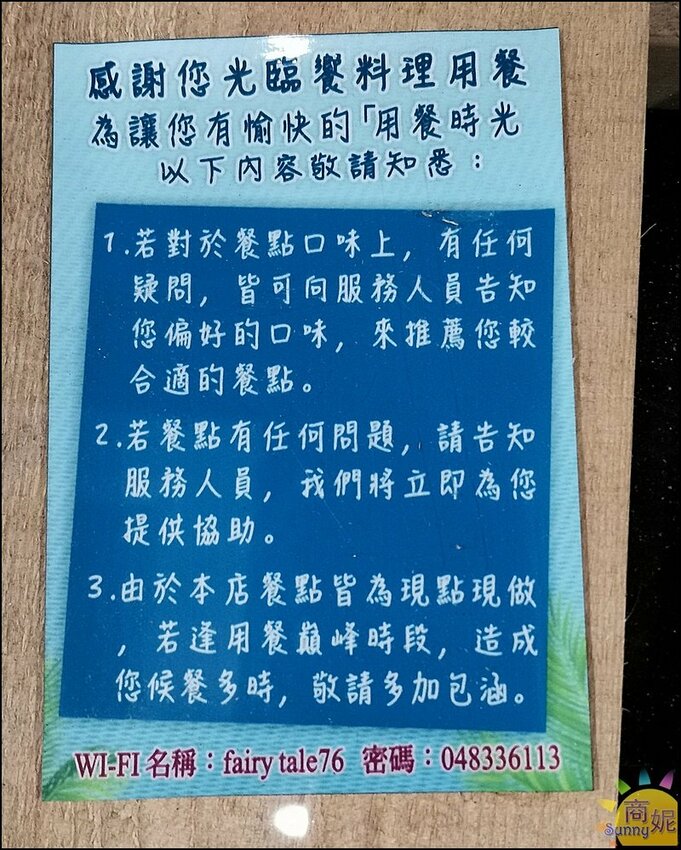 感謝您光臨饗料理用餐
為讓您有愉快的「用餐時光
以下內容敬請知悉：
1.若對於餐點口味上，有任何
疑問，皆可向服務人員告知
您偏好的口味，來推薦您較
合適的餐點。
2.若餐點有任何問題，請告知
服務人員，我們將立即為您
提供協助。
3.由於本店餐點皆為現點現做
，若逢用餐巔峰時段，造成
您候餐多時，敬請多加包涵。
WI-FI 名稱：fairy tale76 密碼：048336113
商妮
Sunny